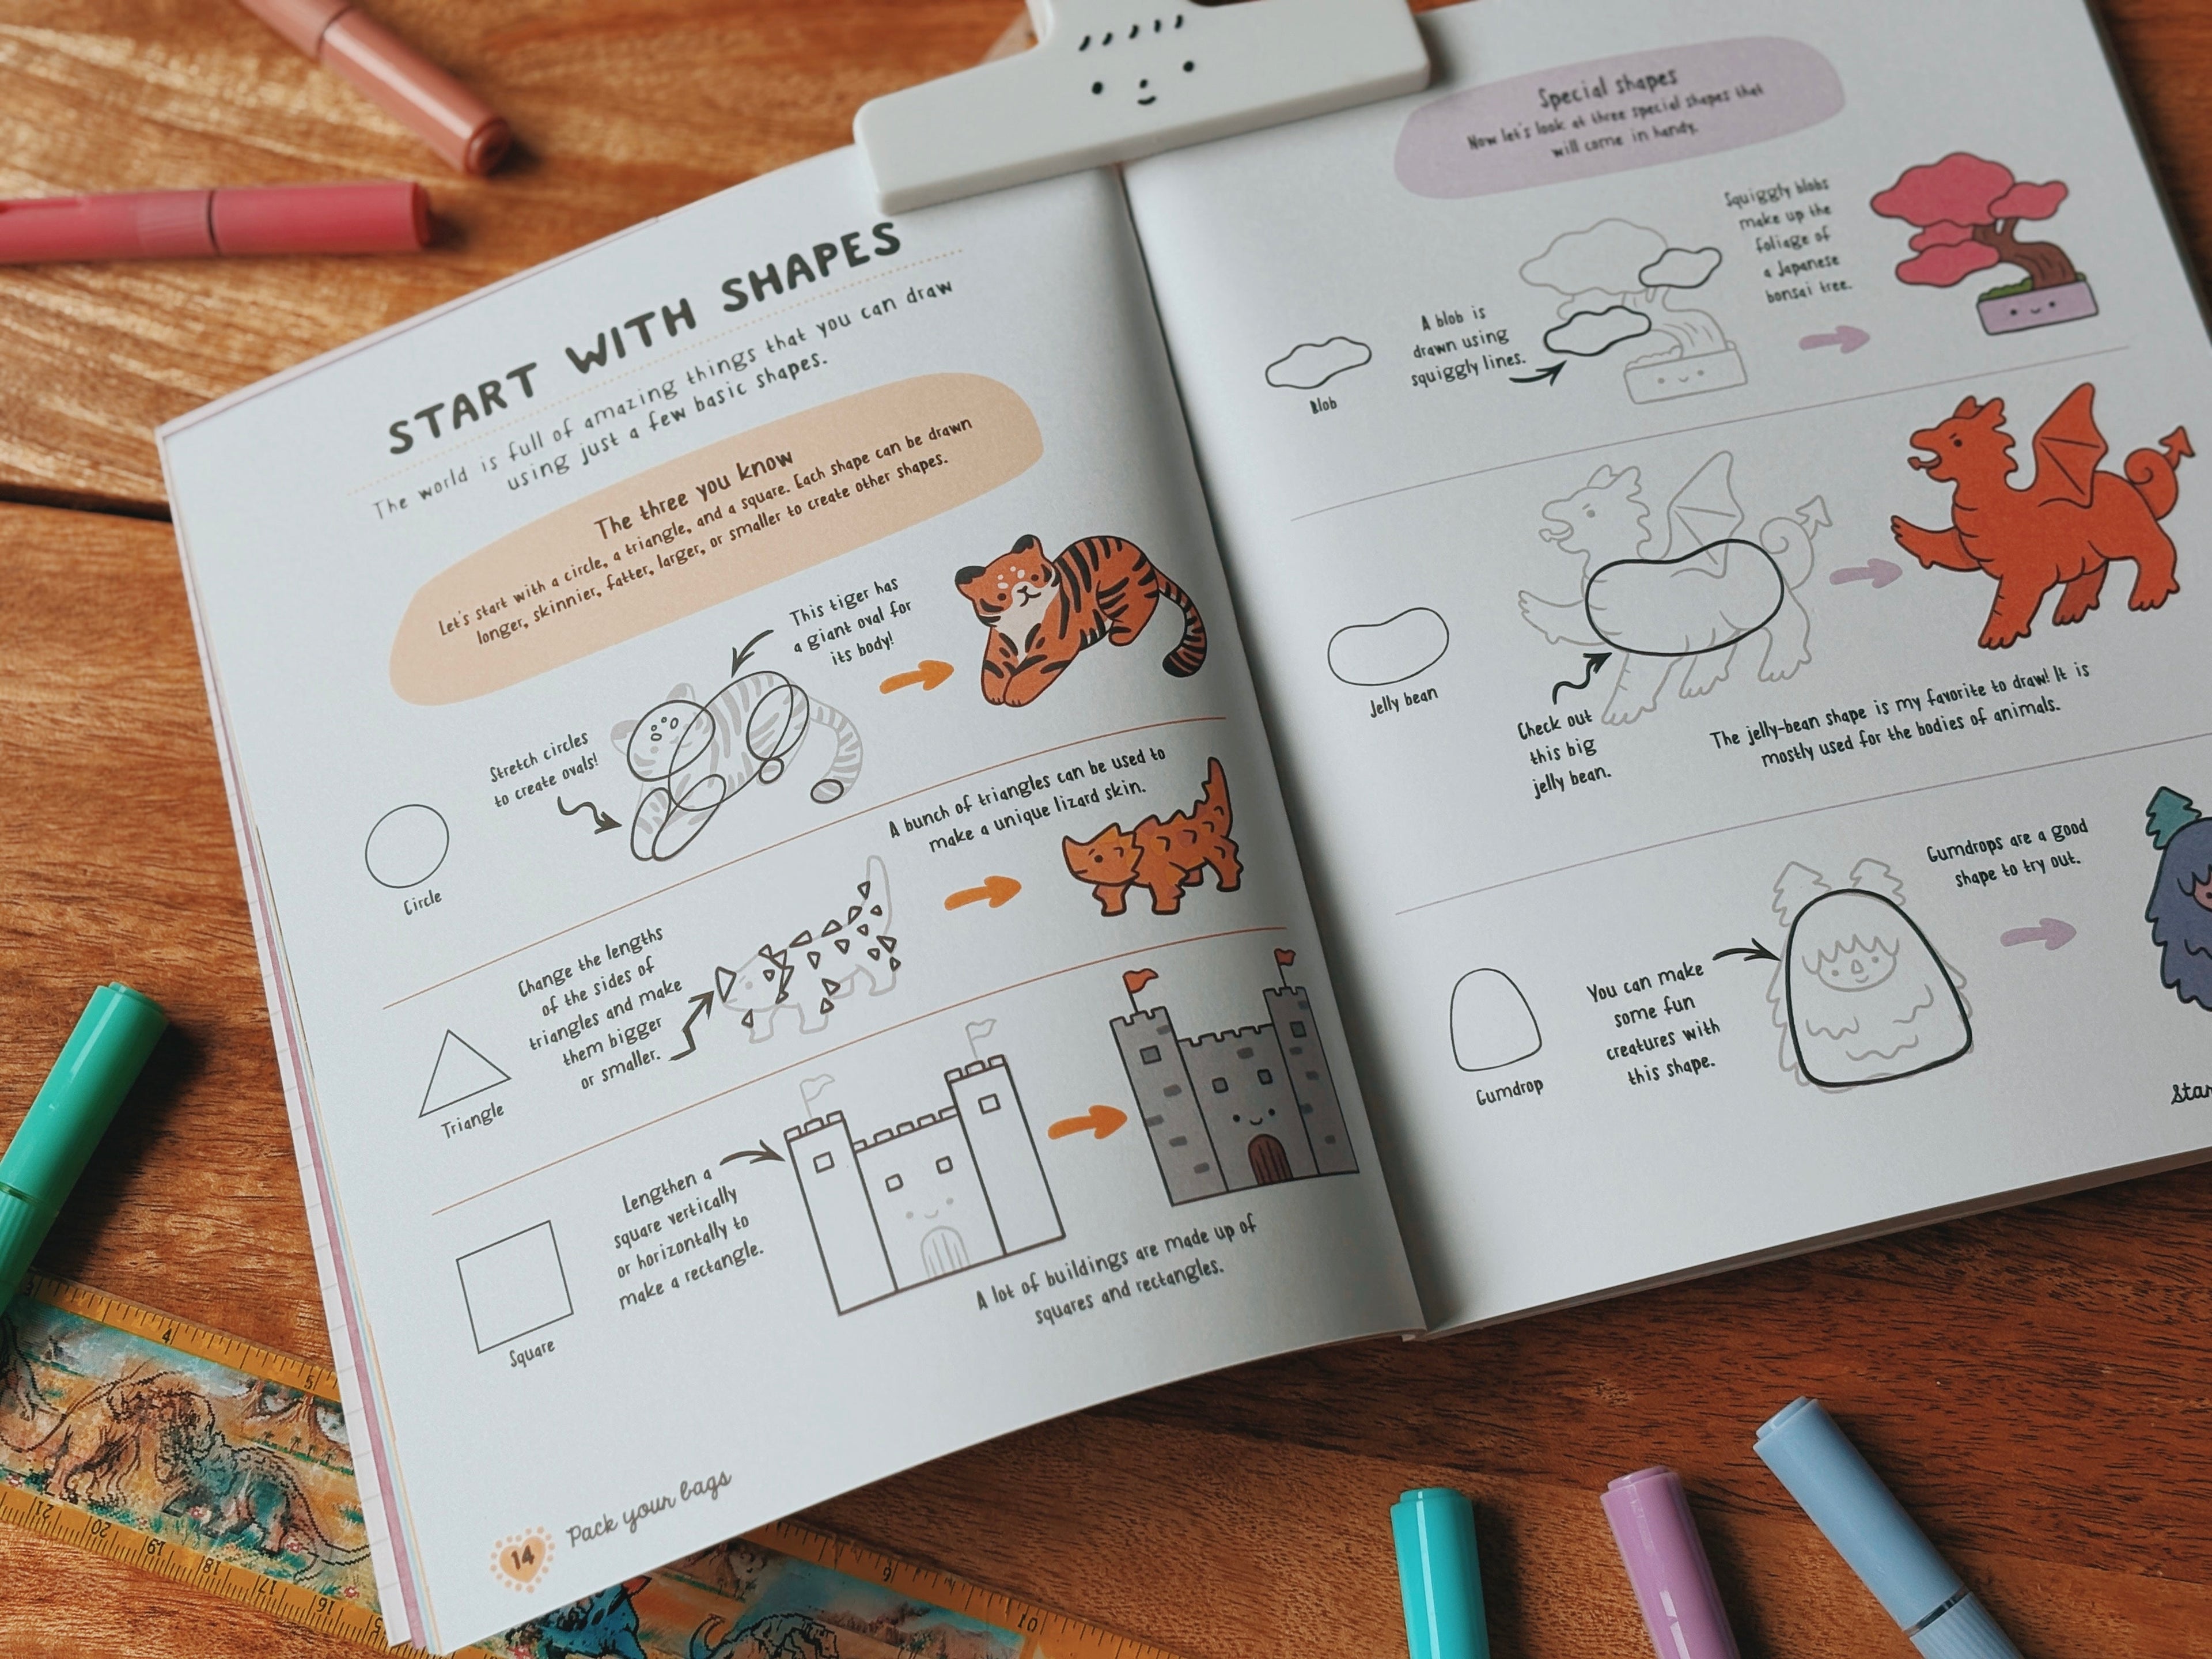 START WITH SHAPES
The world is full of amazing things that you can draw
using just a few basic shapes.
The three you know
Let's start with a circle, a triangle, and a square. Each shape can be drawn
longer, skinnier, fatter, larger, or smaller to create other shapes.
Stretch circles
to create ovals!
This tiger has
a giant oval for
its body!
Circle
Change the lengths
of the sides of
triangles and make
them bigger
or smaller.
A bunch of triangles can be used to
make a unique lizard skin.
Triangle
Lengthen a
square vertically
or horizontally to
make a rectangle.
A lot of buildings are made up of
squares and rectangles.
Square
14
Pack your bags
Special shapes
Now let's look at three special shapes that
will come in handy.
Blob
A blob is
drawn using
squiggly lines.
Squiggly blobs
make up the
foliage of
a Japanese
bonsai tree.
Jelly bean
Check out
this big
jelly bean.
The jelly-bean shape is my favorite to draw! It is
mostly used for the bodies of animals.
Gumdrop
You can make
some fun
creatures with
this shape.
Gumdrops are a good
shape to try out.
Star
4
5
21
20
19
18
17
16
15
9
10